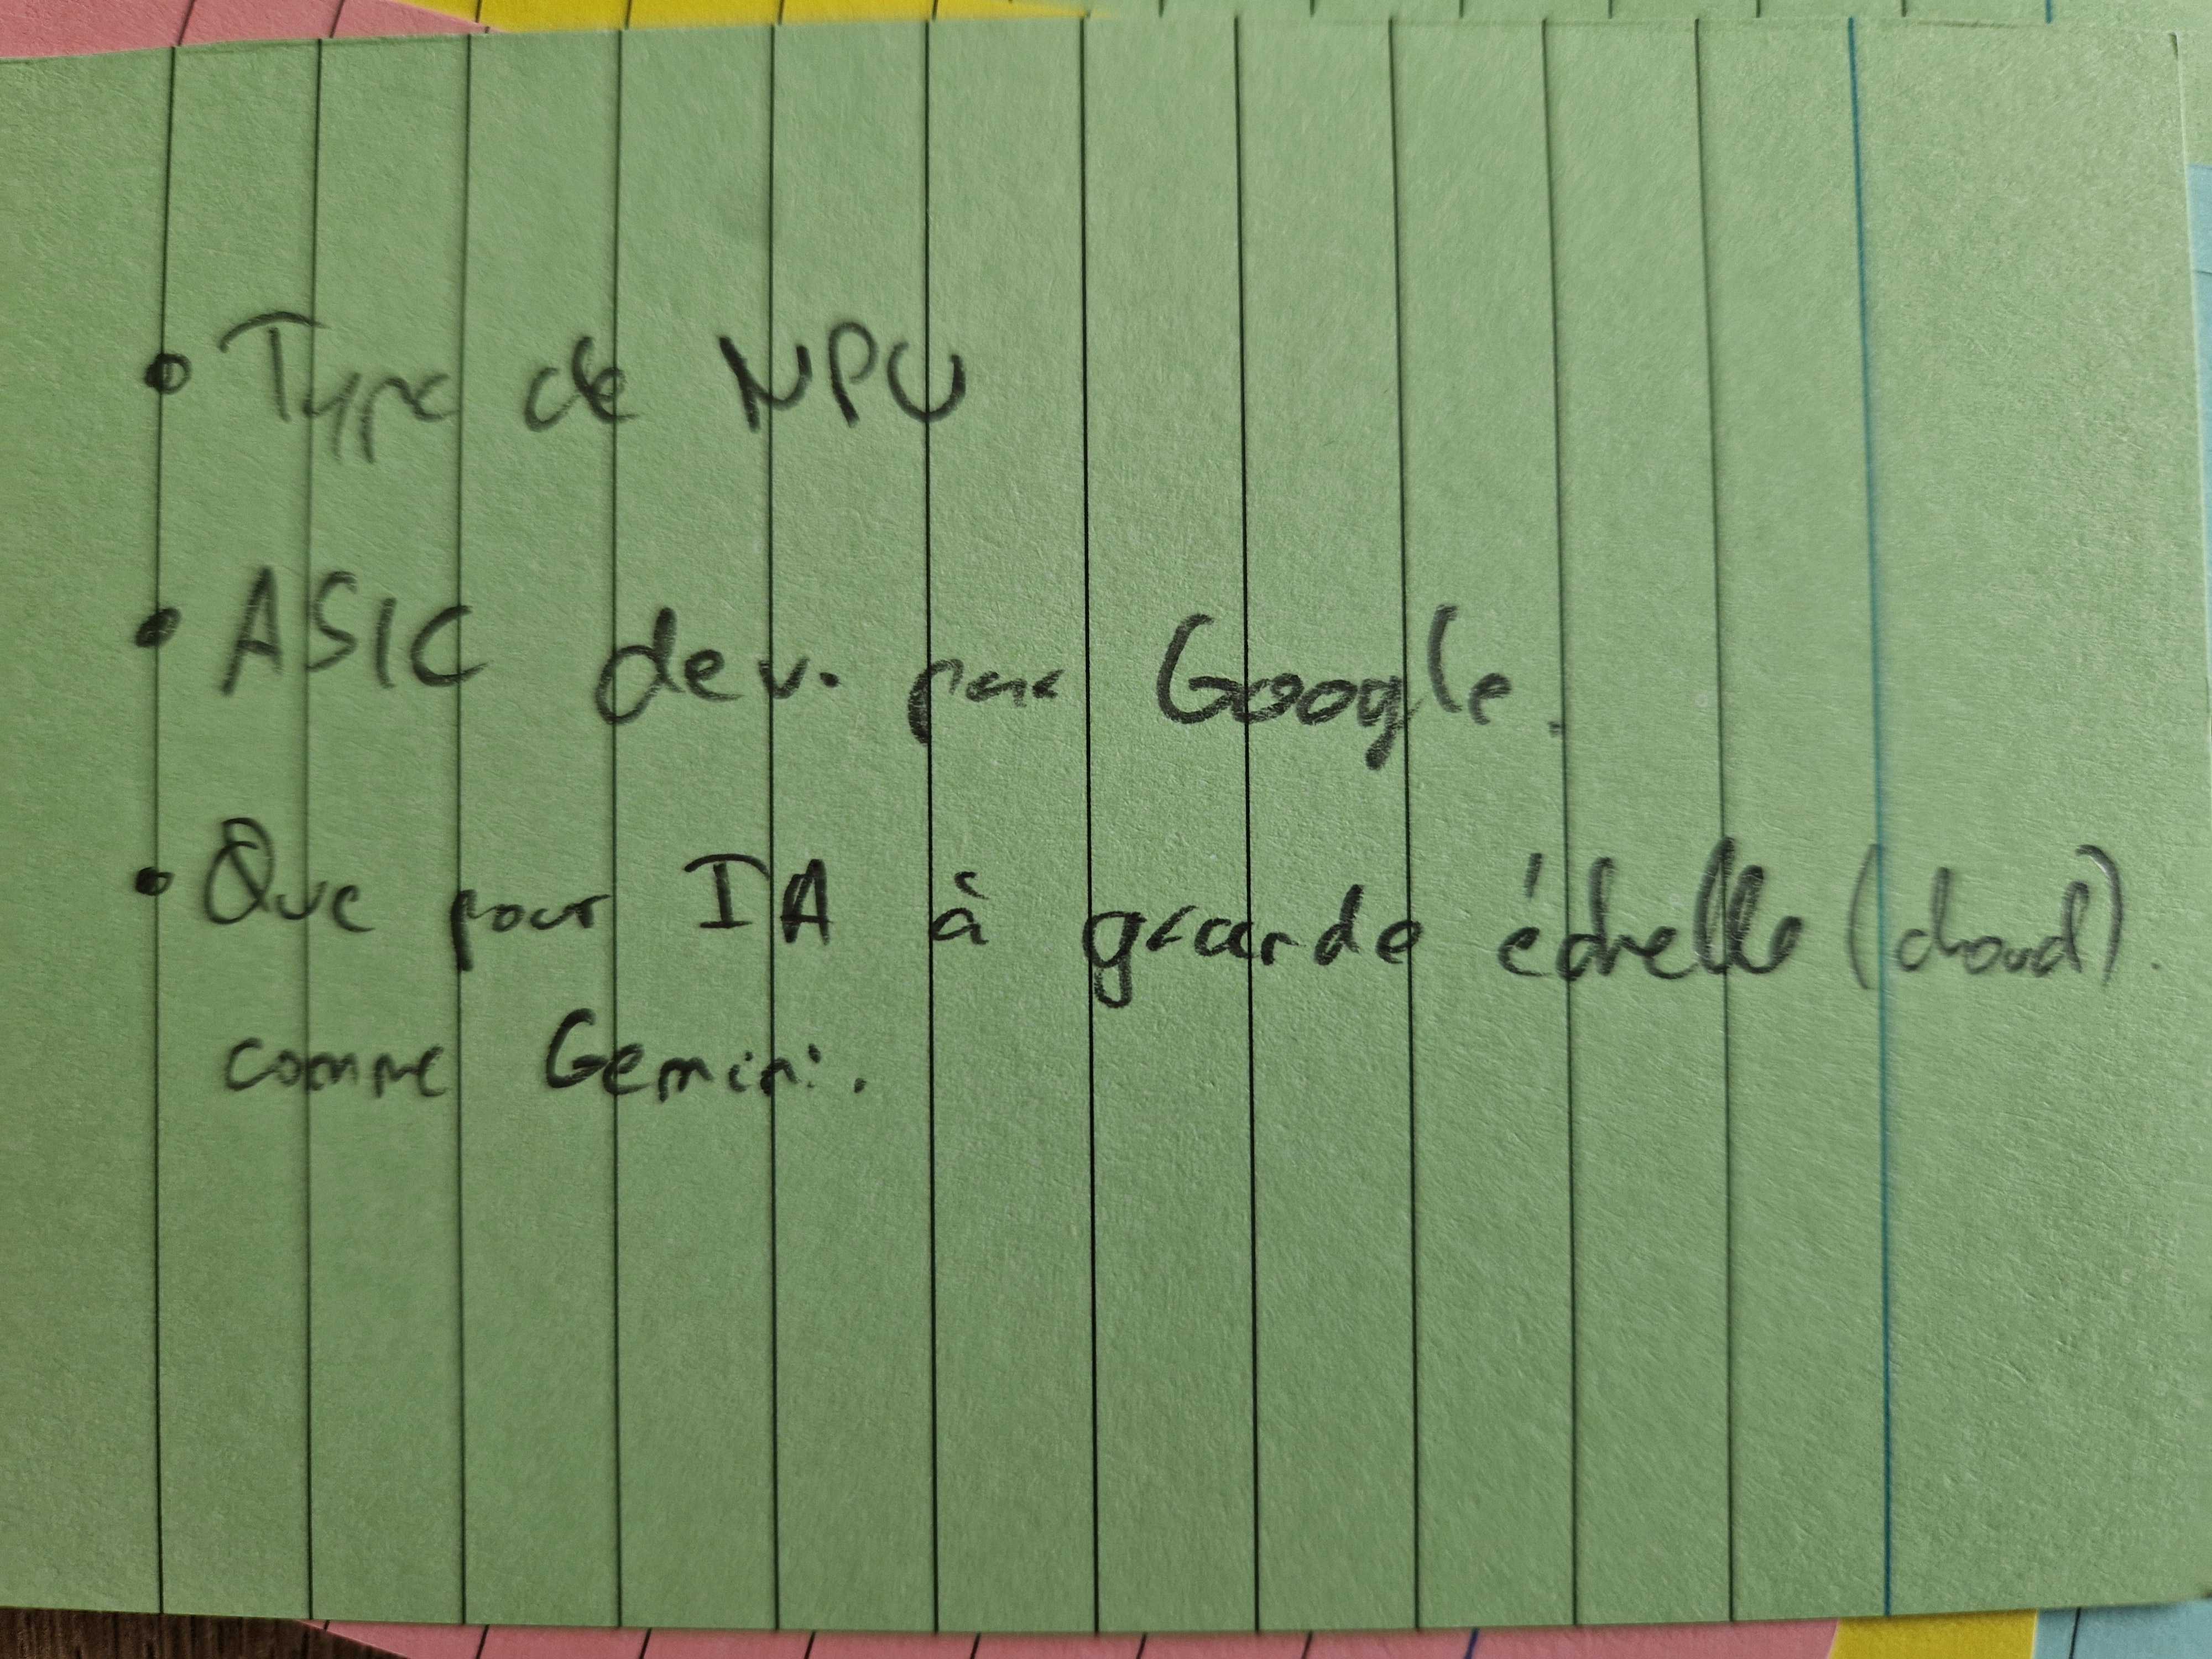 • Type de NPU
• ASIC dev. par Google.
• Que pour IA à grande échelle (cloud).
comme Gemini.